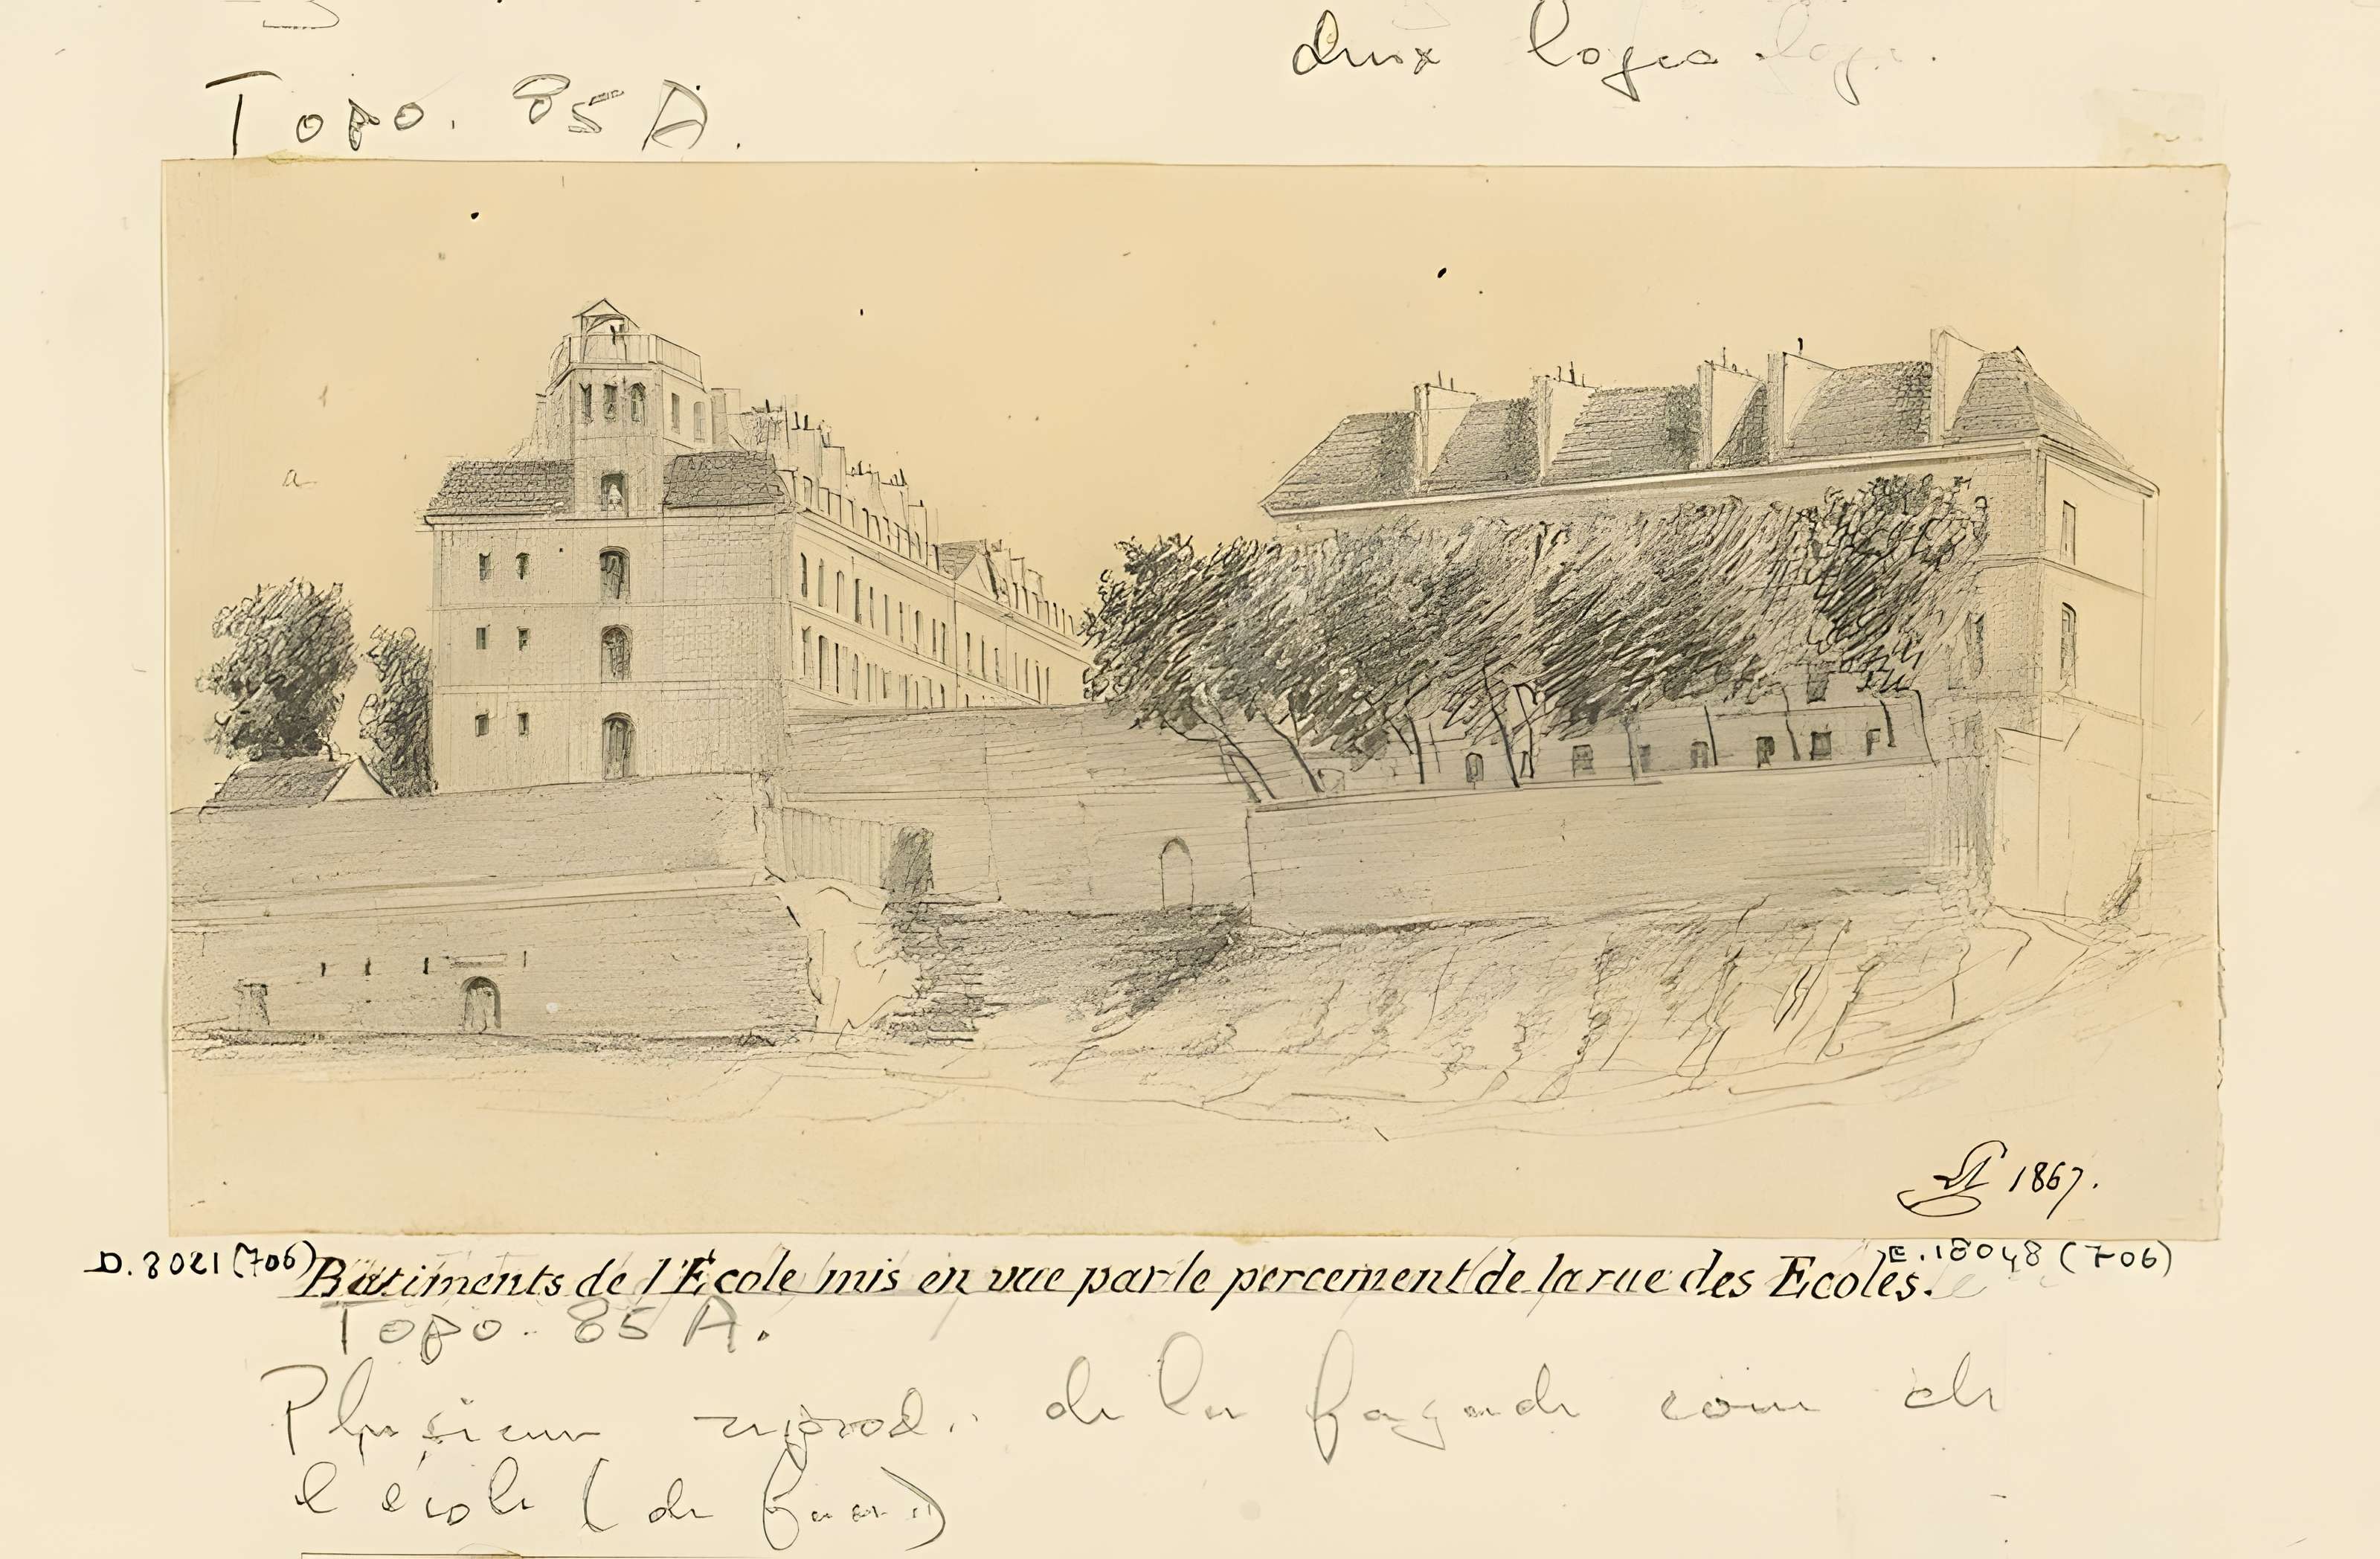 deux loges
Topo. 85 A.
1867.
D. 8021 (706)
E. 18048 (706)
Bâtiments de l'École mis en vue par le percement de la rue des Ecoles.
Topo. 85 A.
Plusieurs reprod. de la façade cour de
l'école (de face)